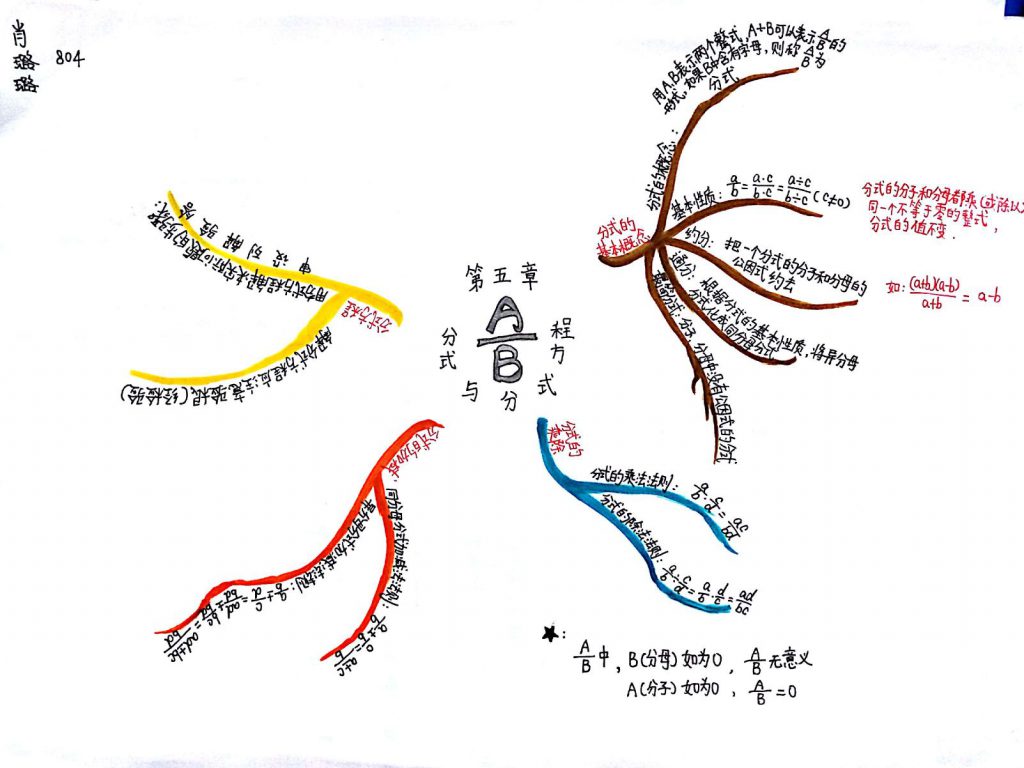 肖璐璐
804
第五章
A/B
分式与分式方程
分式的
基本概念
分式的概念：
用A,B表示两个整式，A÷B可以表示A/B的
形式，如果B中含有字母，则称A/B为
分式
基本性质：a/b=a·c/b·c=a÷c/b÷c(c≠0)
分式的分子和分母都乘(或除以)
同一个不等于零的整式，
分式的值不变．
约分：把一个分式的分子和分母的
公因式约去
如：(a+b)(a-b)/a+b=a-b
通分：根据分式的基本性质，将异分母
分式化成同分母分式
最简分式：分子，分母中没有公因式的分式
分式的
乘除
分式的乘法法则：a/b·c/d=ac/bd
分式的除法法则：a/b÷c/d=a/b·d/c=ad/bc
分式的加减：
同分母分式加减法法则：a/b±c/b=a±c/b
异分母分式加减法法则：a/b±c/d=ad/bd±bc/bd=ad±bc/bd
分式方程
用分式方程解决实际问题的步骤：
审 设 列 解 验 答
解分式方程应注意验根(经检验)
★：
A/B中，B(分母)如为0，A/B无意义
A(分子)如为0，A/B=0